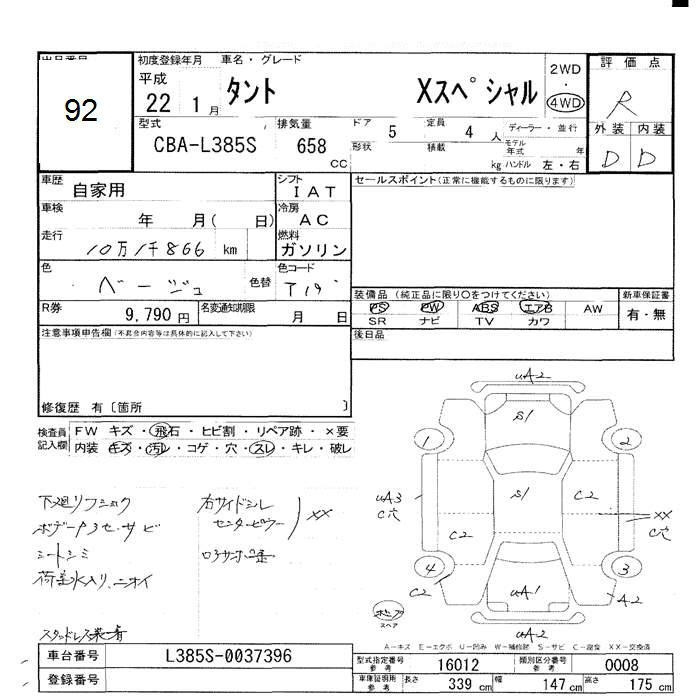 出品番号
92
初度登録年月 車名・グレード
平成
22 1月 タント Xスペシャル
2WD
・
4WD
評価点
R
外装 内装
D D
型式 排気量 ドア 定員
CBA-L385S 658 CC 5 4人
ディーラー・並行
形状 積載 kg
モデル年式 年
ハンドル 左・右
車歴 自家用
シフト IAT
車検 年 月( 日)
冷房 AC
走行 10万1千866 km
燃料 ガソリン
色 ベージュ 色替
色コード T19
R券 9,790円
名変通知期限 月 日
セールスポイント(正常に機能するものに限ります)
装備品(純正品に限り○をつけてください)
PS PW ABS エアB AW
SR ナビ TV カワ
新車保証書
有・無
後日品
注意事項申告欄(不具合内容等は具体的に記入して下さい)
修復歴 有〔箇所 〕
検査員記入欄
FW キズ・飛石・ヒビ割・リペア跡・×要
内装 キズ・汚レ・コゲ・穴・スレ・キレ・破レ
下廻リフショク
ボデーP3セ.サビ
シートシミ
荷室水入リ.ニオイ
スタッドレス装着
右サイドシル
センターピラー
XX
uA2
S1
1
2
uA3
C穴
S1
C2
C2
XX
C穴
4
3
C2
uA1
A2
uA2
スペア
A-キズ E-エクボ U-凹み W-補修跡 S-サビ C-腐食 XX-交換済
車台番号 L385S-0037396
登録番号
型式指定番号 参考 16012
類別区分番号 参考 0008
車庫証明用 参考 長さ 339 cm 幅 147 cm 高さ 175 cm